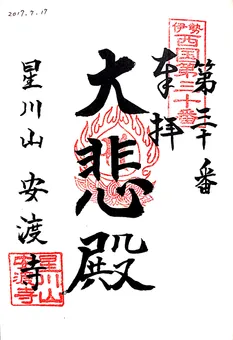 2017.7.17
伊勢
西国第三十番
第三十番
奉拝
大悲殿
星川山 安渡寺
星川山
安渡寺